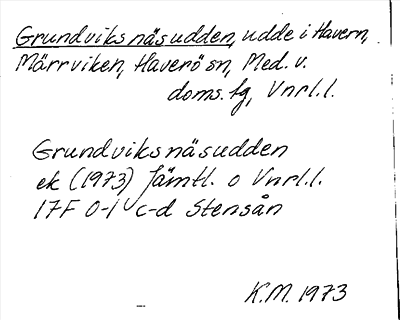 Grundviksnäsudden, udde i Havern,
Märrviken, Haverö sn, Med. v.
doms. tg, Vnrl. l.
Grundviksnäsudden
ek (1973) Jämtl. o Vnrl. l.
17F 0-1 c-d Stensån
K.M. 1973